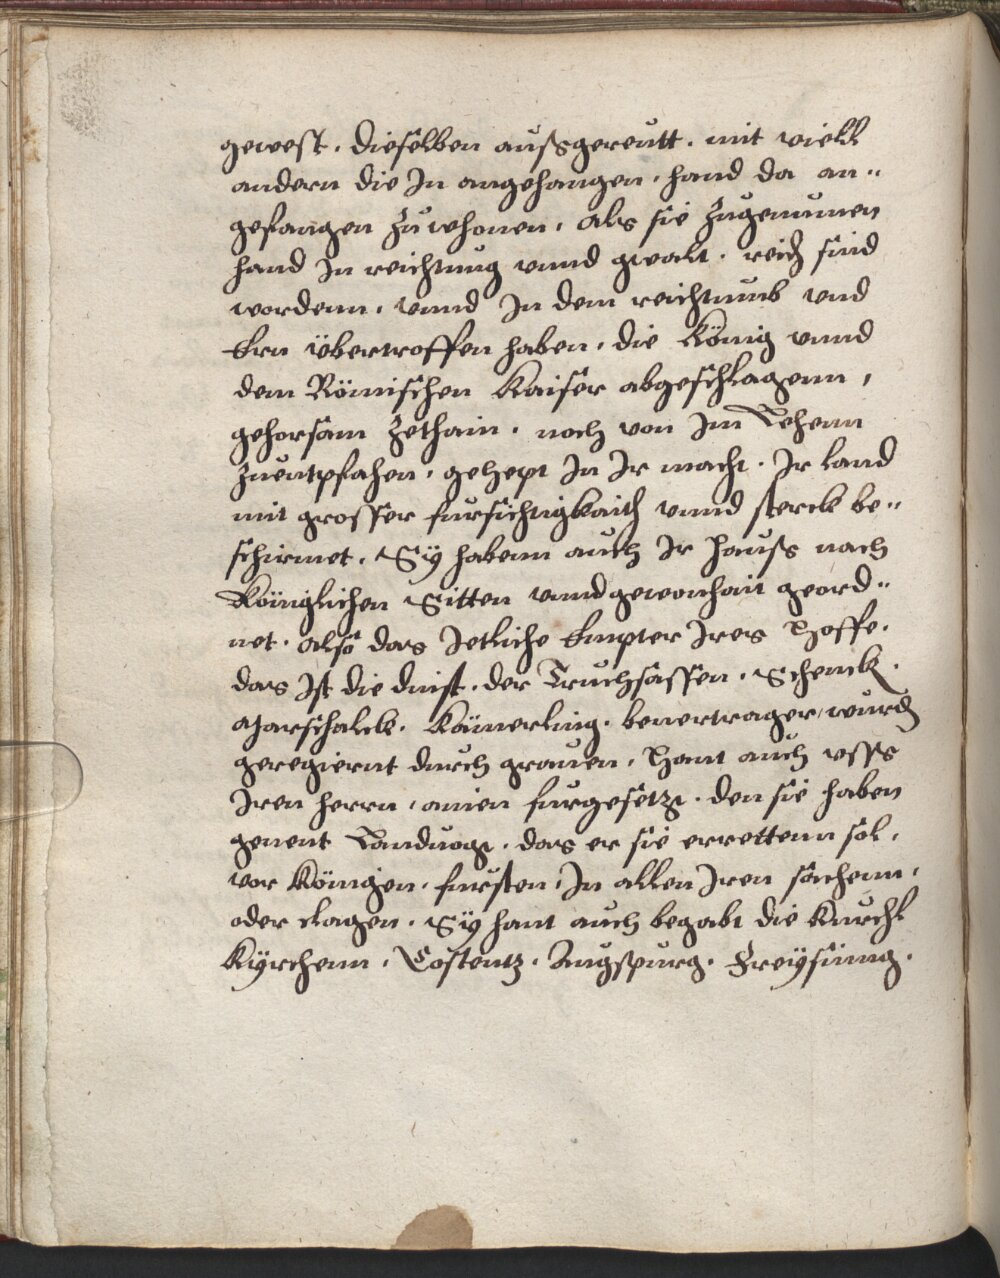 gewest. dieselben außgereutt. mit viell
andern die In angehangen. hand da an-
gefangen zuwhonen. als sie zugenumen
hand In reichtung vnnd gwalt. reich sind
wordenn. vnnd In dem reichtumb vnd
Ern übertroffen haben. die König vnnd
dem Römischen Kaiser abgeschlagenn,
gehorsam zethain. noch von Im Lehenn
zuentpfahen. gehept In Ir macht. Ir land
mit grosser fursichtigkaith vnnd sterck be-
schirmet. Sÿ habenn auch Ir Hauß nach
Königlichen Sitten vnnd gewonhait geord-
net. also das Jetliche Empter Ires Hoffe.
das Ist die dinst. der Truchsassen. Schenck.
Marschalck. Kämerling. wurd
geregiernt durch grauen. Hant auch vsß
Iren herrn, ainen furgesetzt. den sie haben
genent Landuogt. das er sie errettenn sol.
vor Königen. fursten. In allen Iren sachenn.
oder clagen. Sÿ hant auch begabt die
Kÿrchenn. Costentz. Augspurg. Freÿsinng.